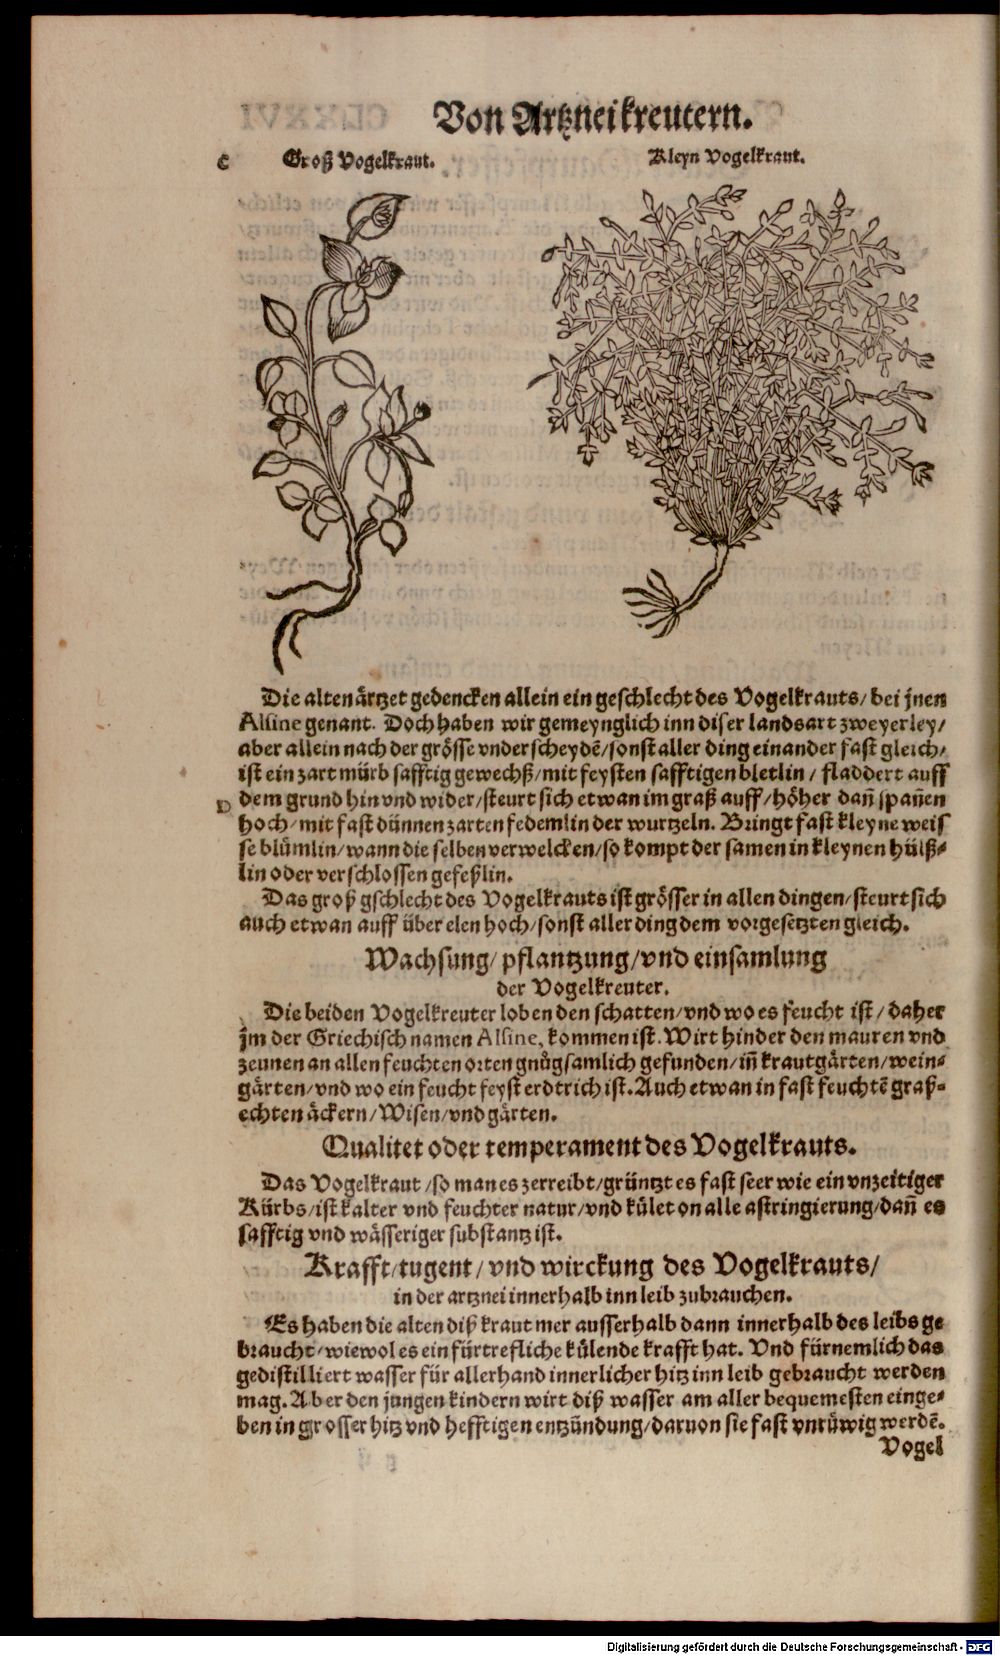 Von Artzneikreutern.
C
Groß Vogelkraut.
Kleyn Vogelkraut.
Die alten ärtzet gedencken allein ein geschlecht des Vogelkrauts/ bei jnen
Alsine genant. Doch haben wir gemeynglich inn diser landsart zweyerley/
aber allein nach der grösse vnderscheydẽ/ sonst aller ding einander fast gleich/
ist ein zart mürb safftig gewechß/ mit feysten safftigen bletlin / fladdert auff
D
dem grund hin vnd wider/ steurt sich etwan im graß auff/ höher dañ spañen
hoch/ mit fast dünnen zarten fedemlin der wurtzeln. Bringt fast kleyne weis
se blümlin/ wann die selben verwelcken/ so kompt der samen in kleynen hülß⸗
lin oder verschlossen gefeßlin.
Das groß gschlecht des Vogelkrauts ist grösser in allen dingen/ steurt sich
auch etwan auff über elen hoch/ sonst aller ding dem vorgesetzten gleich.
Wachsung/ pflantzung/ vnd einsamlung
der Vogelkreuter.
Die beiden Vogelkreuter loben den schatten/ vnd wo es feucht ist/ daher
jm der Griechisch namen Alsine, kommen ist. Wirt hinder den mauren vnd
zeunen an allen feuchten orten gnůgsamlich gefunden/ iñ krautgärten/ wein⸗
gärten/ vnd wo ein feucht feyst erdtrich ist. Auch etwan in fast feuchtẽ graß⸗
echten äckern/ Wisen/ vnd gärten.
Qualitet oder temperament des Vogelkrauts.
Das Vogelkraut /so man es zerreibt/ grüntzt es fast seer wie ein vnzeitiger
Kürbs/ ist kalter vnd feuchter natur/ vnd kület on alle astringierung/ dañ es
safftig vnd wässeriger substantz ist.
Krafft/ tugent/ vnd wirckung des Vogelkrauts/
in der artznei innerhalb inn leib zubrauchen.
Es haben die alten diß kraut mer ausserhalb dann innerhalb des leibs ge
braucht/ wiewol es ein fürtrefliche külende krafft hat. Vnd fürnemlich das
gedistilliert wasser für allerhand innerlicher hitz inn leib gebraucht werden
mag. Aber den jungen kindern wirt diß wasser am aller bequemesten einge⸗
ben in grosser hitz vnd hefftigen entzündung/ daruon sie fast vnrüwig werdẽ.
Vogel
Digitalisierung gefördert durch die Deutsche Forschungsgemeinschaft - DFG